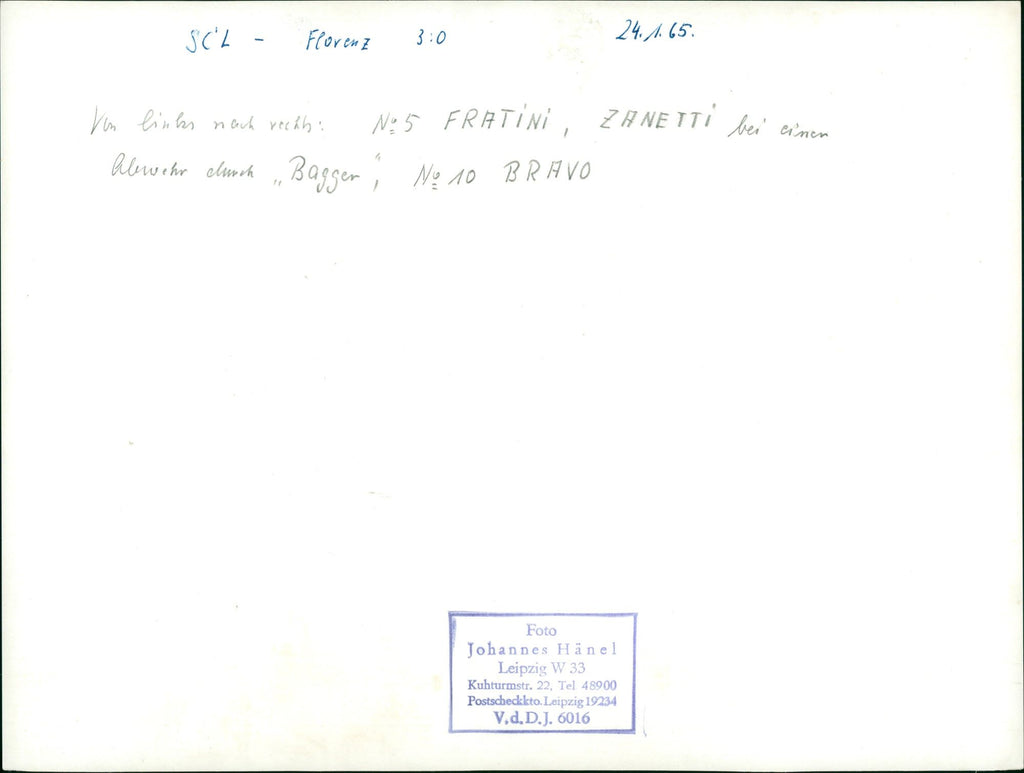 SCL - Florenz 3:0 24.1.65.
Von links nach rechts: No 5 FRATINI, ZANETTI bei einer
Abwehr durch „Bagger", No 10 BRAVO
Foto
Johannes Hänel
Leipzig W 33
Kuhturmstr. 22, Tel 48900
Postscheckkto. Leipzig 19234
V.d.D.J. 6016